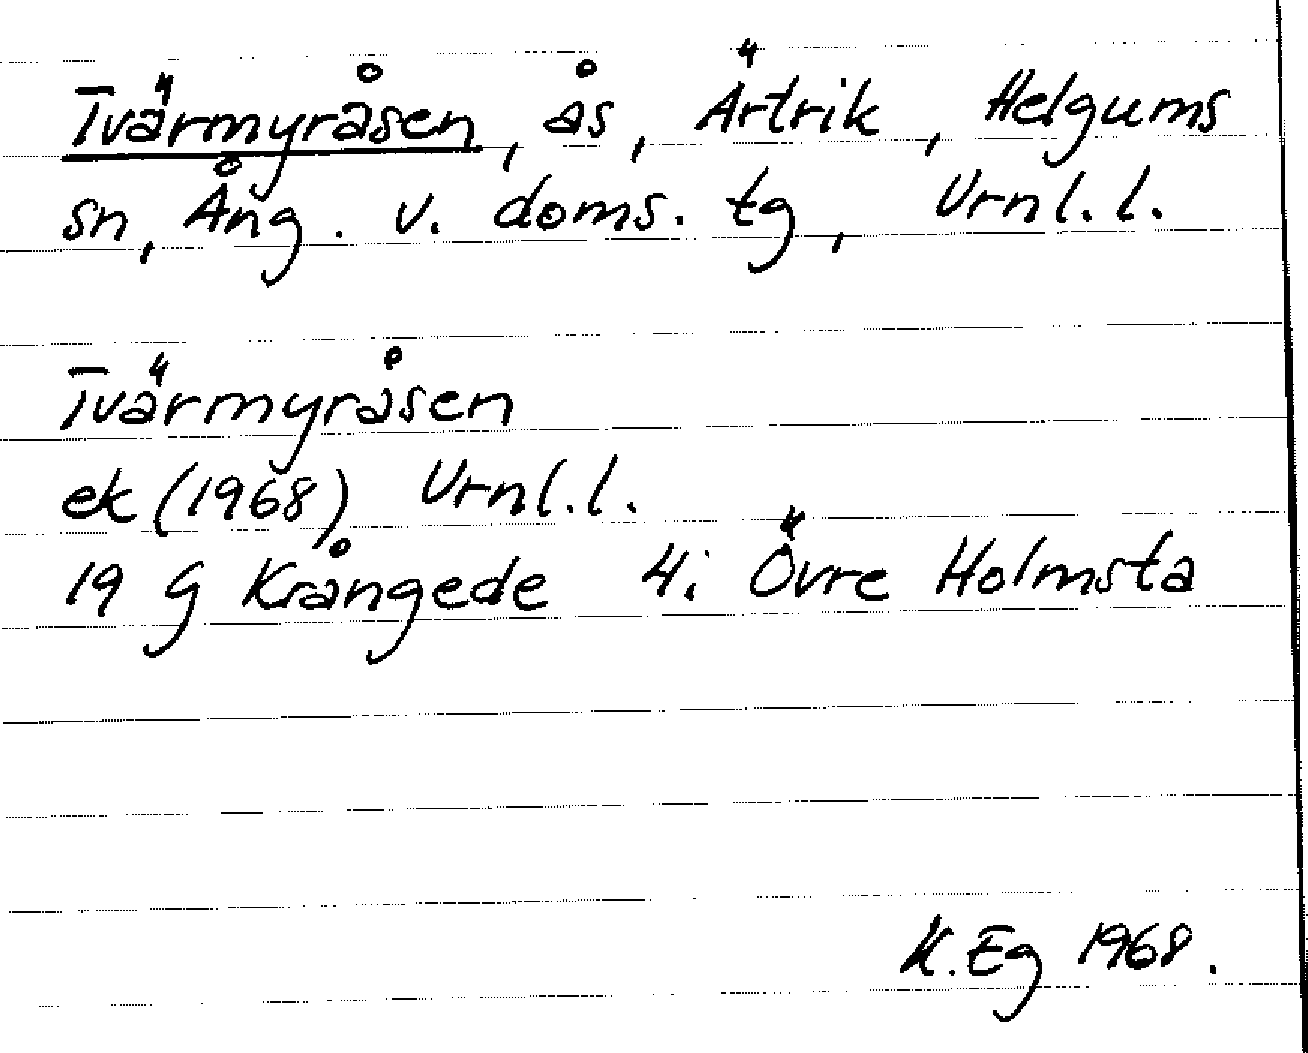 Tvärmyråsen, ås, Ärtrik, Helgums
sn, Ång. v. doms. tg, Urnl. l.
Tvärmyråsen
ek (1968) Urnl. l.
19 G Krångede 4i Övre Holmsta
K. Eg 1968.